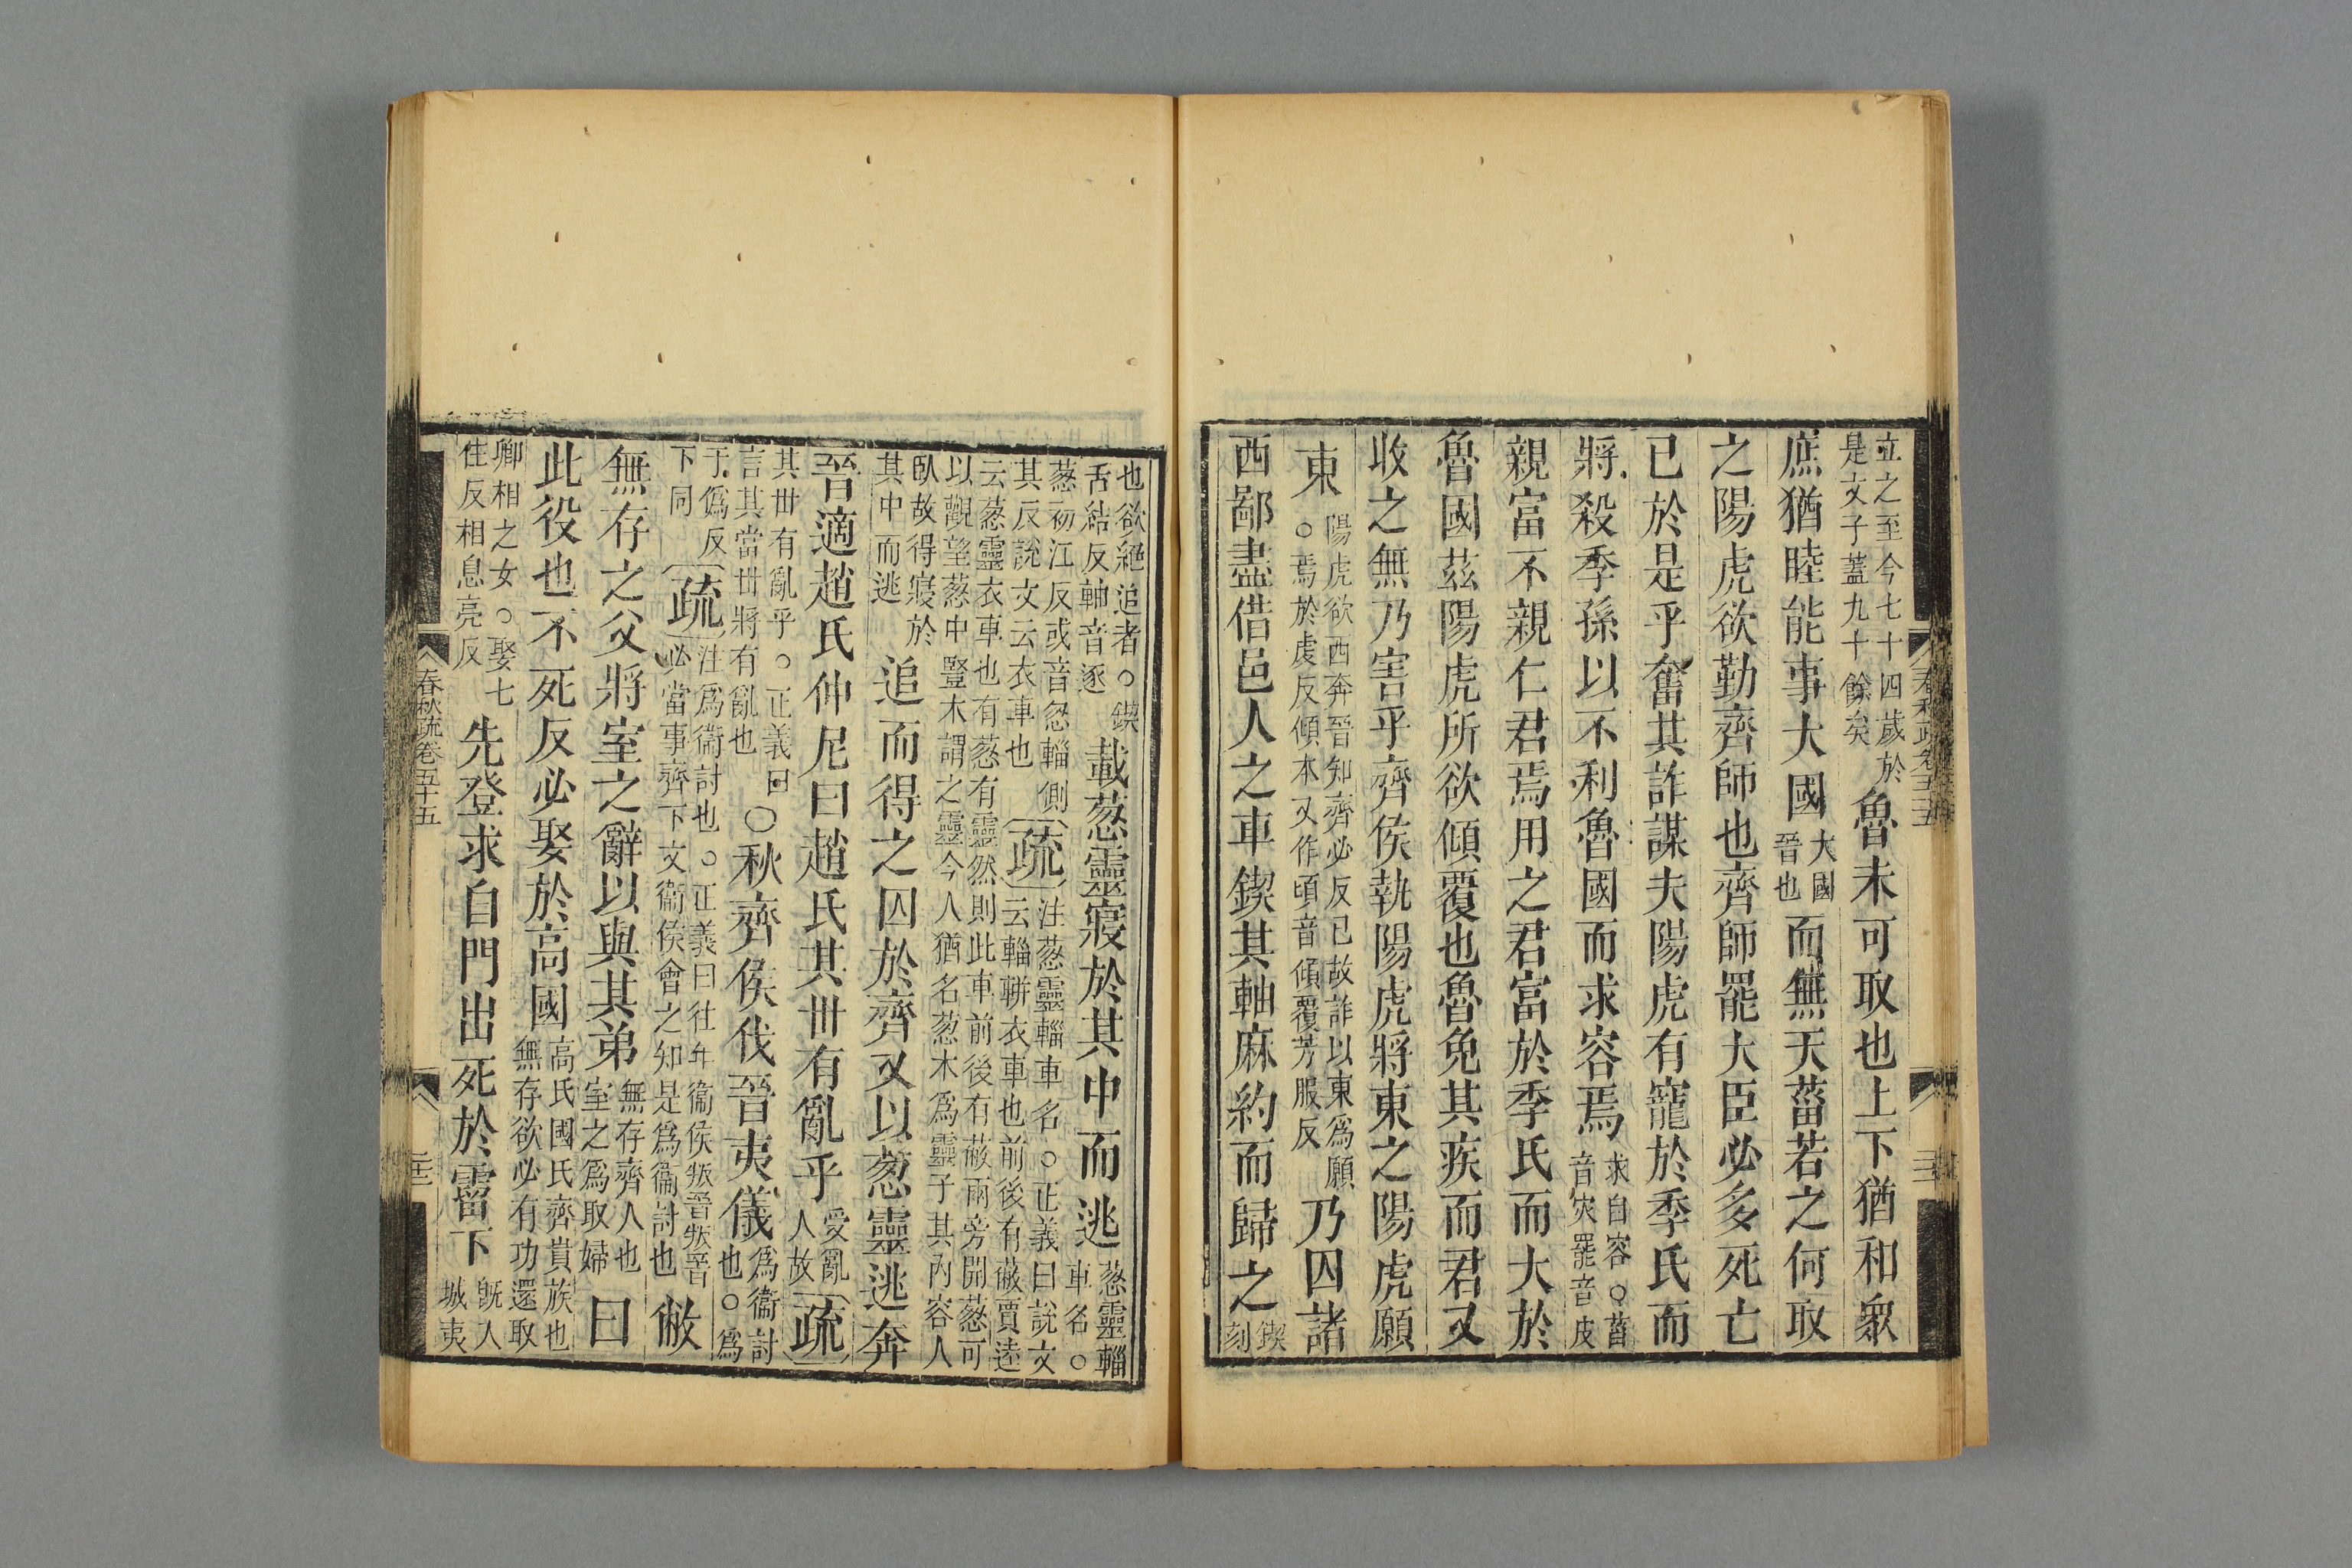 立之至今七十四歲於
是文子蓋九十餘矣
魯未可取也上下猶和衆
庶猶睦能事大國
大國
晉也
而無天菑若之何取
之陽虎欲勤齊師也齊師罷大臣必多死亡
已於是乎奮其詐謀夫陽虎有寵於季氏而
將殺季孫以不利魯國而求容焉
求自容○菑
音灾罷音皮
親富不親仁君焉用之君富於季氏而大於
魯國茲陽虎所欲傾覆也魯免其疾而君又
收之無乃害乎齊侯執陽虎將東之陽虎願
東
陽虎欲西奔晉知齊必反已故詐以東為願
○焉於虔反傾本又作頃音傾覆芳服反
乃囚諸
西鄙盡借邑人之車鍥其軸麻約而歸之
鍥
刻
也欲絕追者○鍥
舌結反軸音逐
載葱靈寢於其中而逃
葱靈輜
車名○
葱初江反或音怱輜側
其反說文云衣車也
疏
注葱靈輜車名○正義曰說文
云輜軿衣車也前後有蔽賈逵
云葱靈衣車也有葱有靈然則此車前後有蔽兩旁開葱可
以觀望葱中豎木謂之靈今人猶名葱木為靈子其內容人
臥故得寢於
其中而逃
追而得之囚於齊又以葱靈逃奔
晉適趙氏仲尼曰趙氏其世有亂乎
受亂
人故
疏
其世有亂乎○正義曰
言其當世將有亂也
○秋齊侯伐晉夷儀
為衞討
也○為
于偽反
下同
疏
注為衞討也○正義曰往年衞侯叛晉叛晉
必當事齊下文衞侯會之知是為衞討也
敝
無存之父將室之辭以與其弟
無存齊人也
室之為取婦
曰
此役也不死反必娶於高國
高氏國氏齊貴族也
無存欲必有功還取
卿相之女○娶七
住反相息亮反
先登求自門出死於霤下
既入
城夷
春秋疏卷五十五